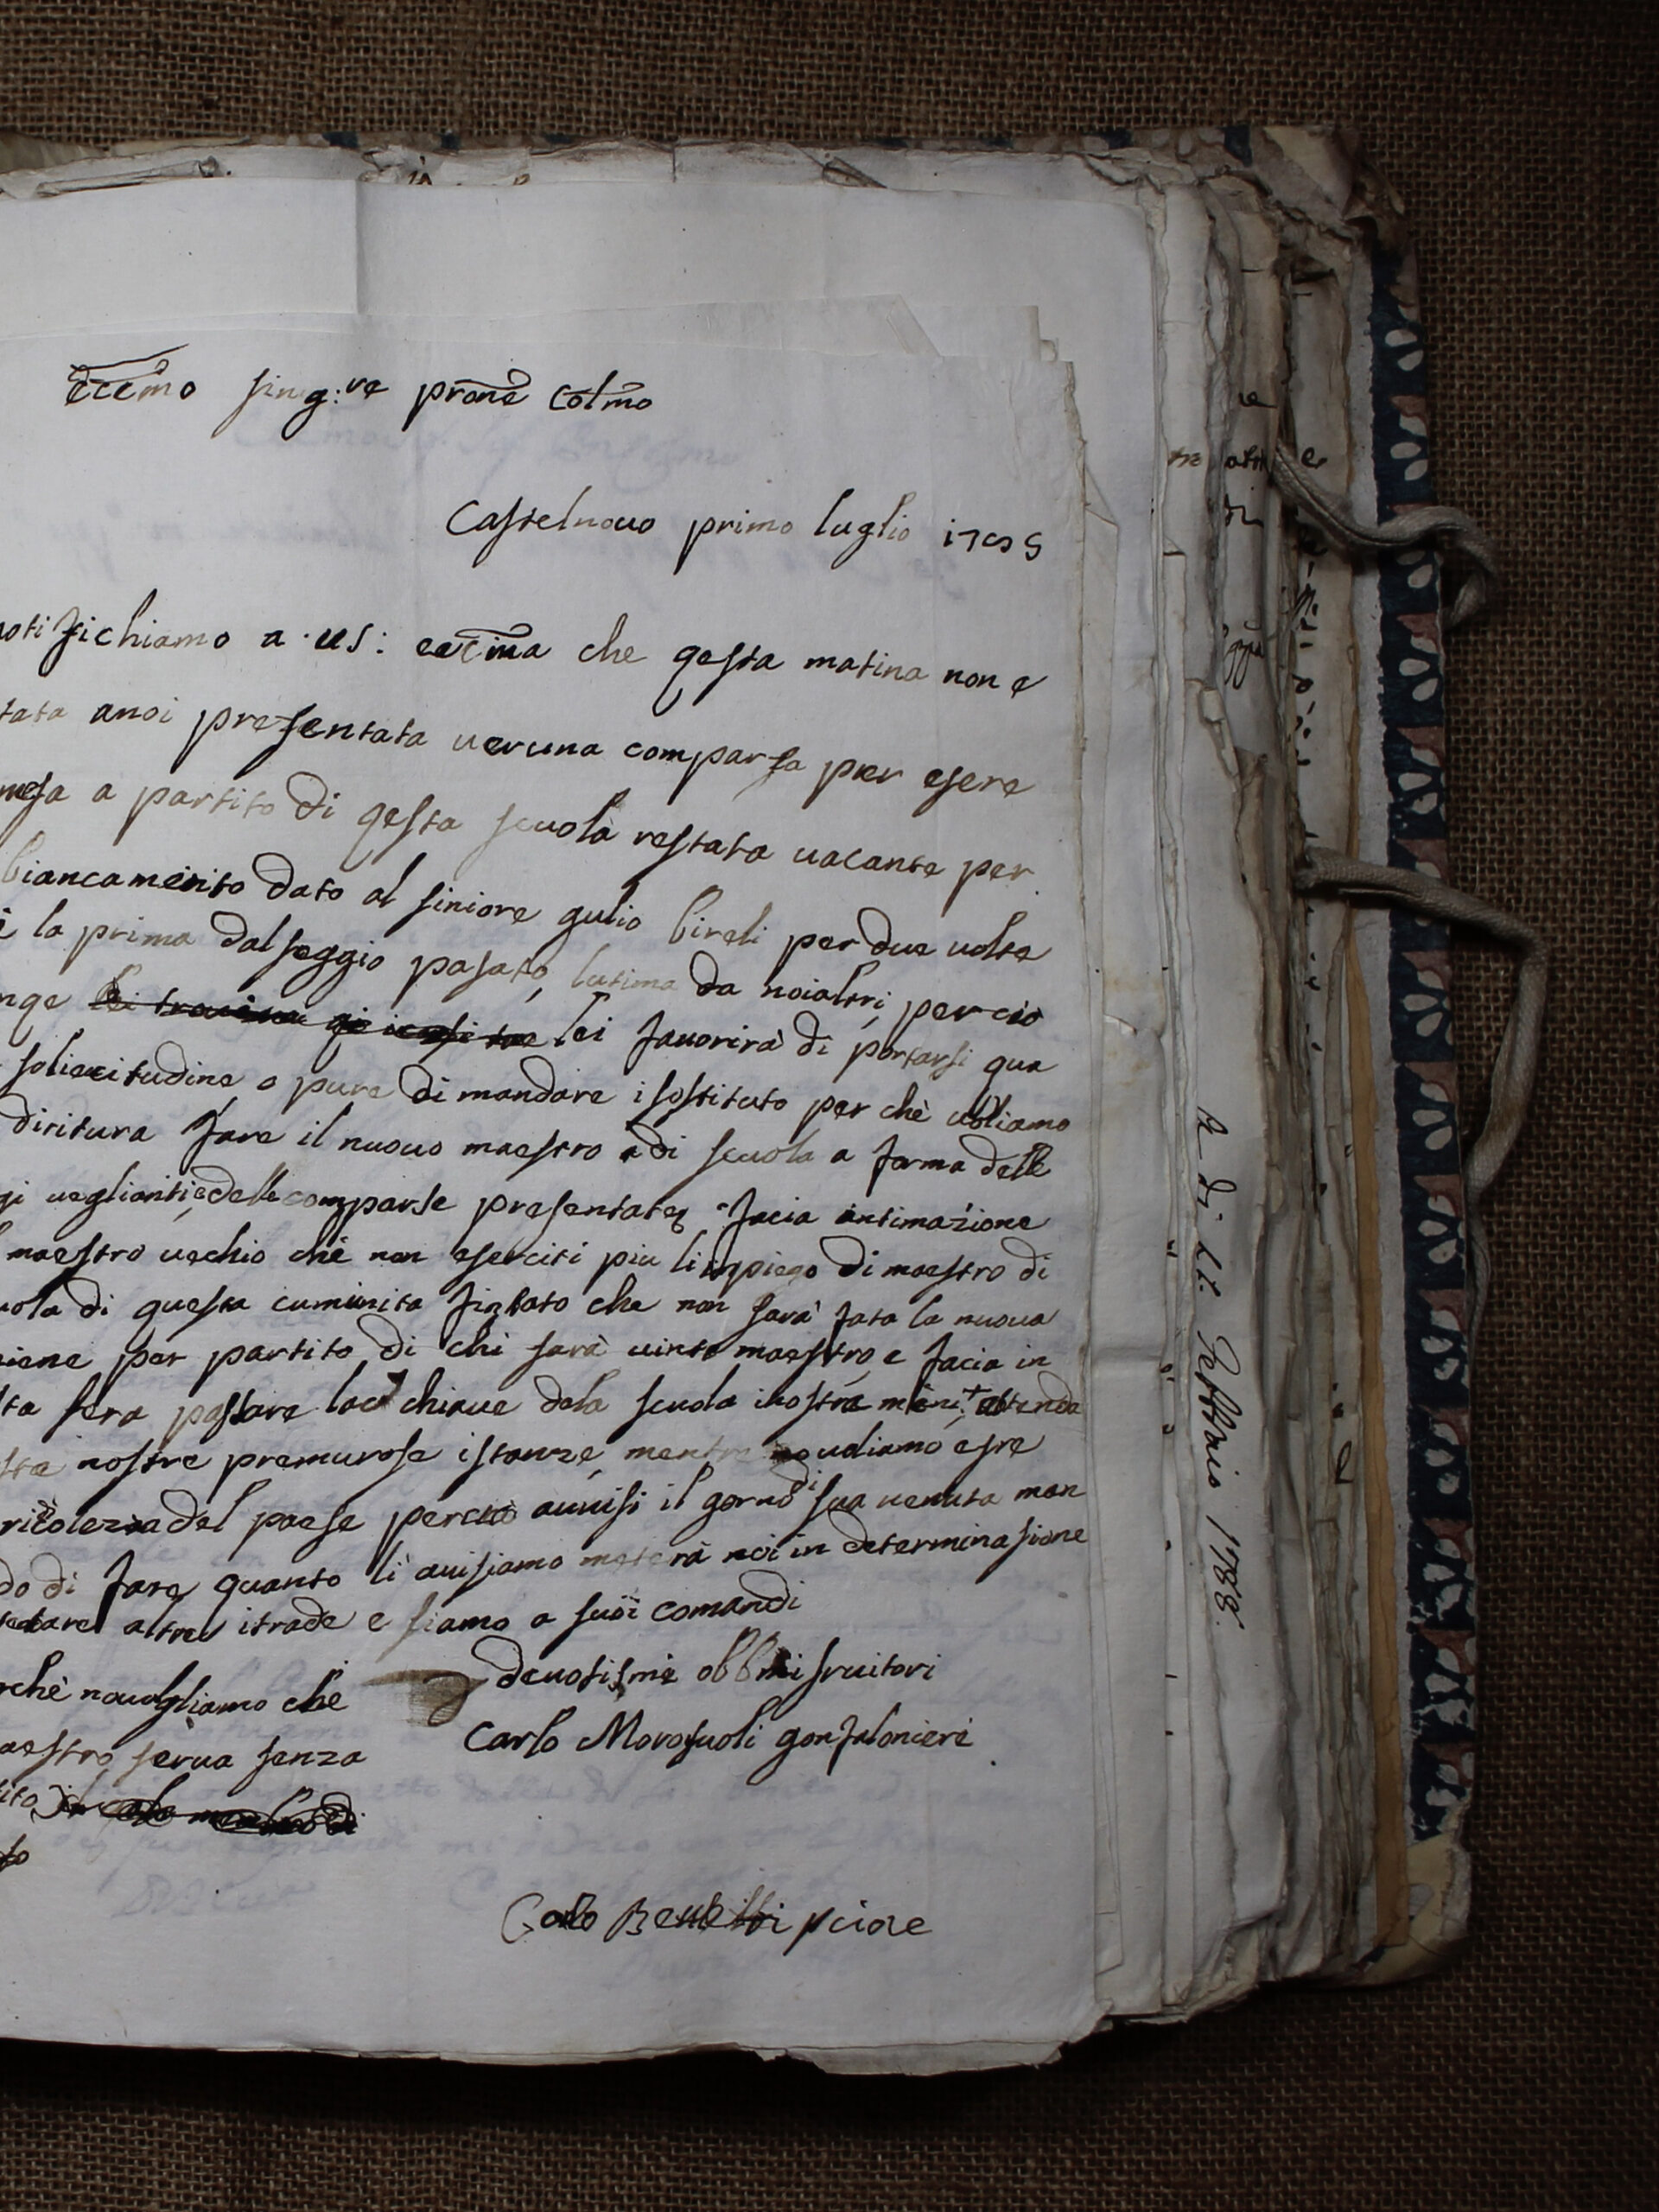 eccmo sing:re prone colmo
Castelnovo primo luglio
notifichiamo a us: eccma che qesta matina non e
tata anoi presentata veruna comparsa per esere
mesa a partito di qesta scuola restata vacante per
biancamento dato al siniore gulio bireli per due volte
la prima dal seggio pasato, lutima da noialtri, percio
lei favorirà di portarsi qua
soliecitudine o pure di mandare i sostituto per chè voliamo
diritura fare il nuovo maestro di scuola a forma delle
gi veglianti e delle comparse presentate facia intimazione
maestro vechio che non eserciti piu li inpiego di maestro di
uola di questa cumunita fintato che non sarà fata la nuova
per partito di chi sarà vinto maestro, e facia in
ta sera pasare la chiave dela scuola inostre mani
sta nostre premurose istanze, mentre voliamo esre
del paese percio avvisi il gorno di sua venuta man
do di fare quanto li avisiamo meterà noi in determinasione
altre itrade e siamo a suoi comandi
devotismi obbmi servitori
Carlo Morosuoli gonfalonieri
rchè novogliamo che
aestro serva senza
ito
to
Carlo Benetti priore
A dì 21. Febbraio 1788